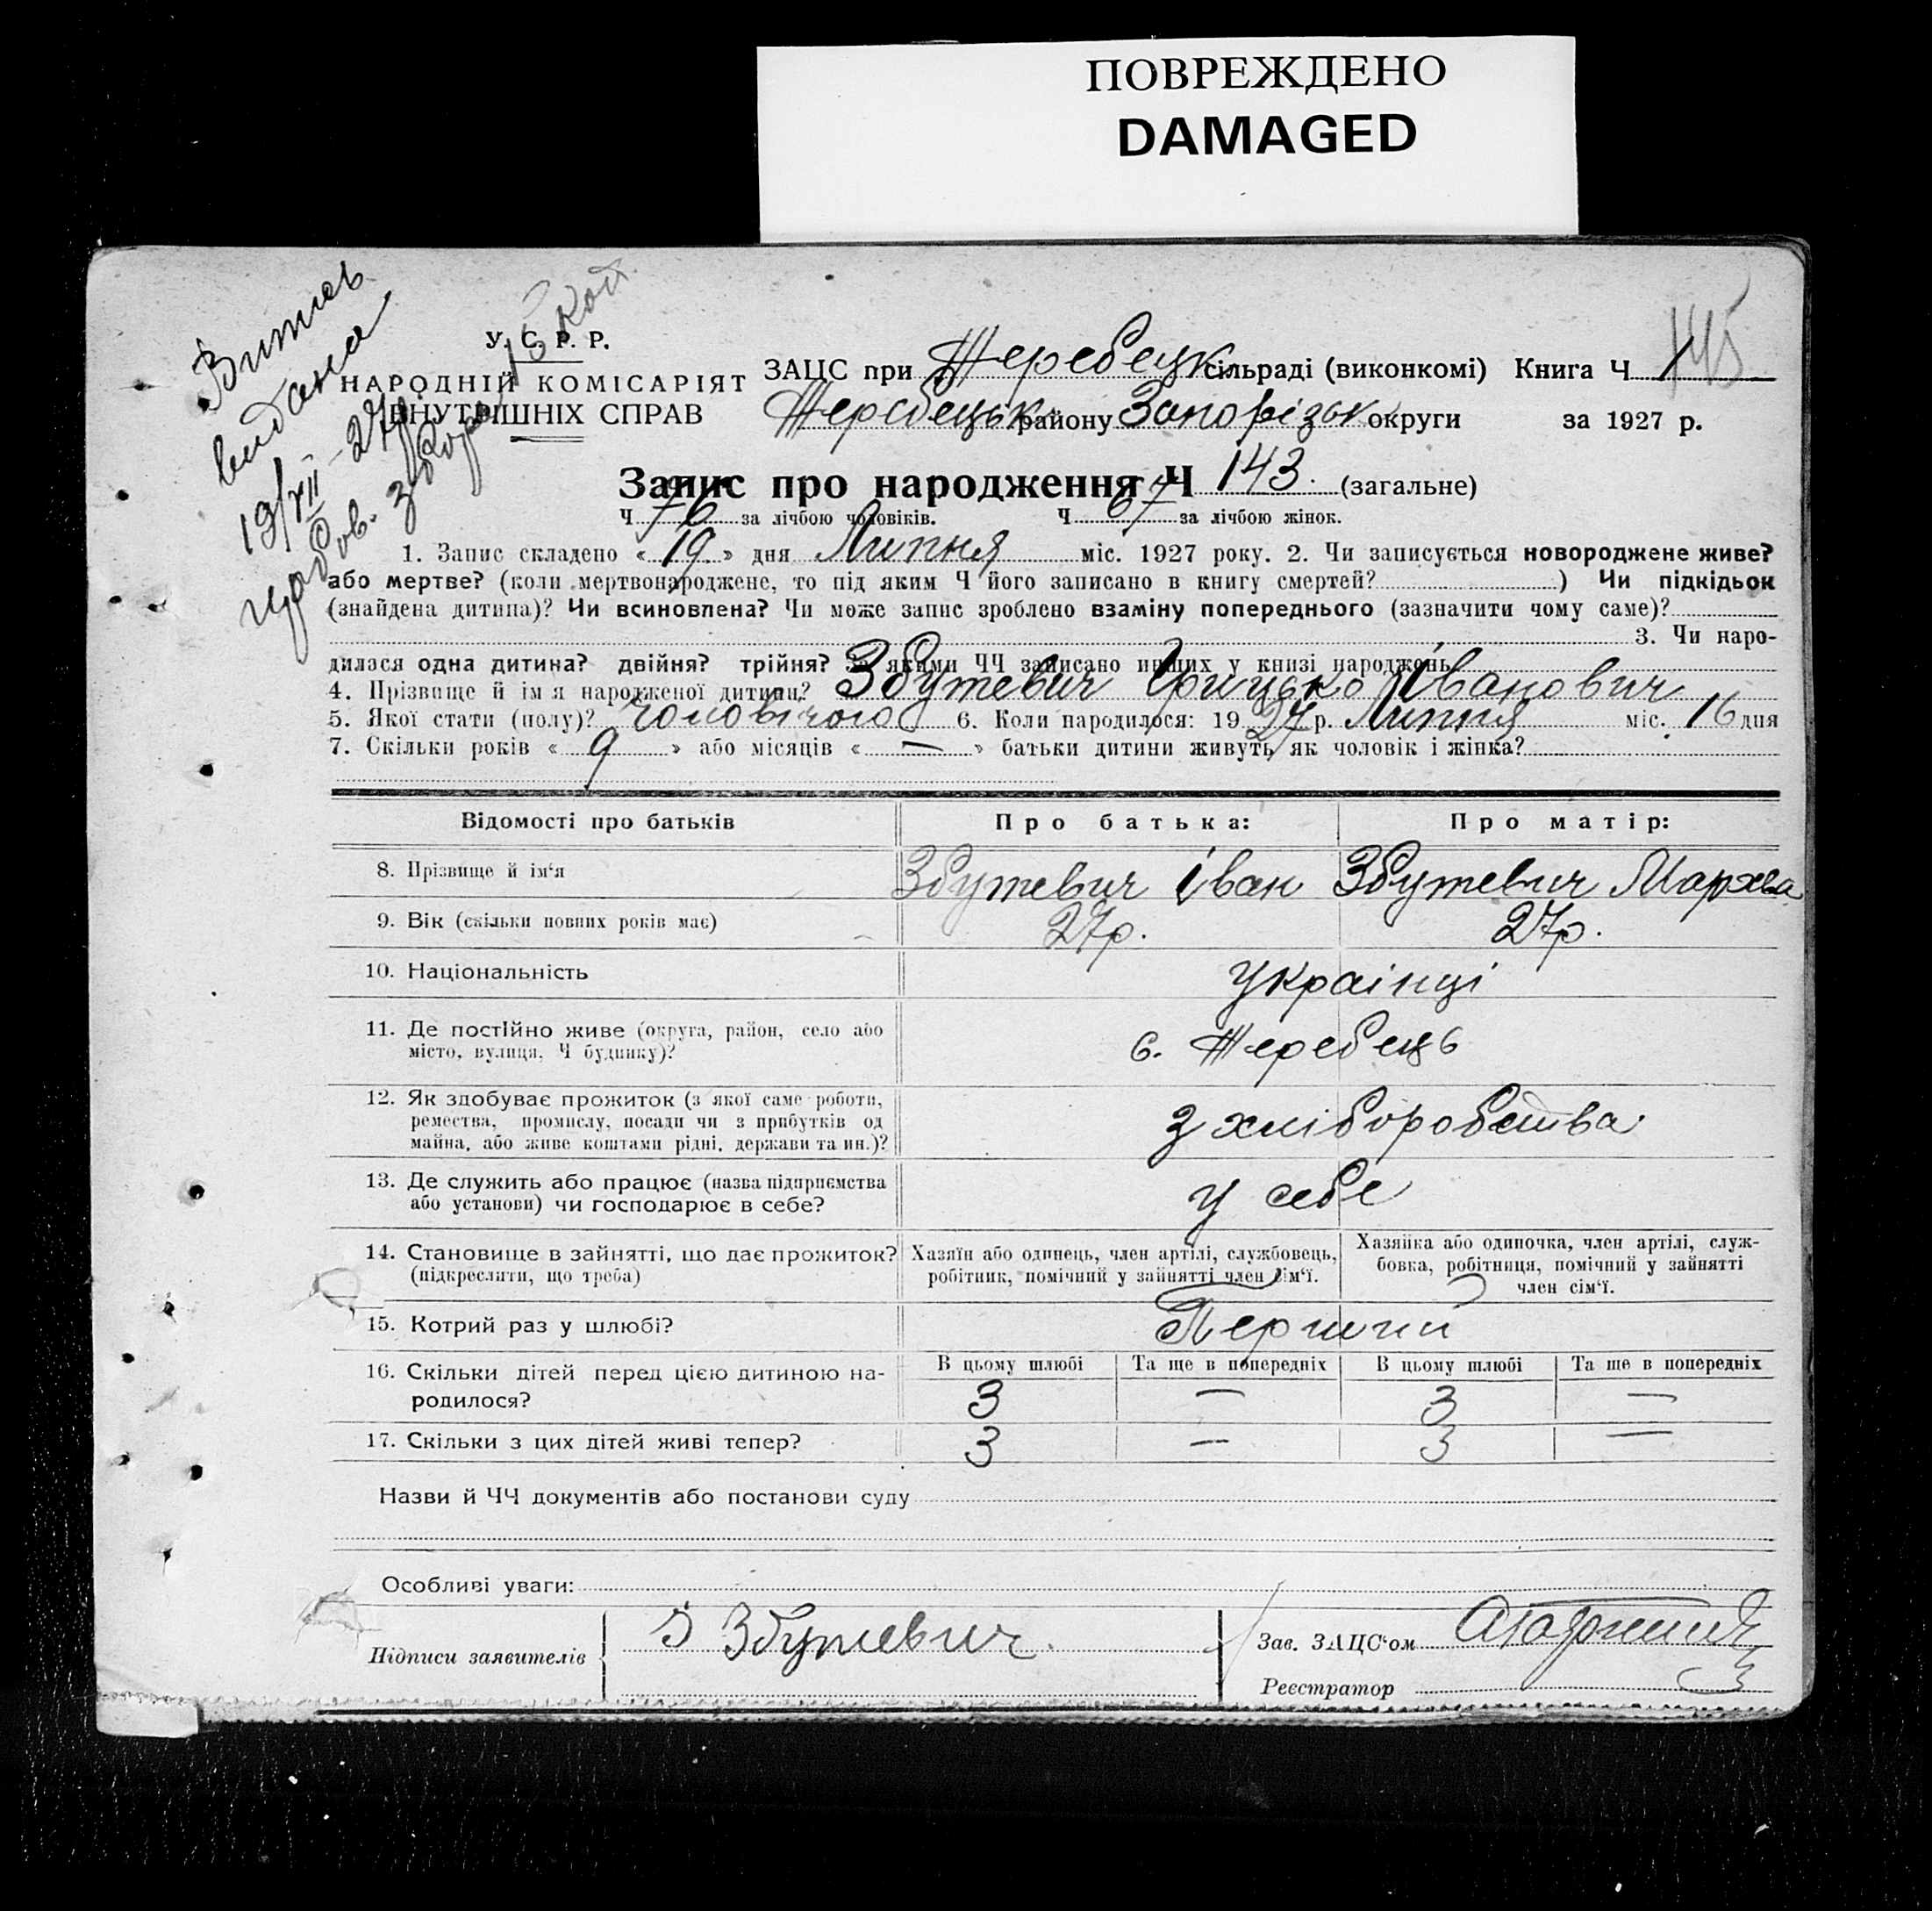 ПОВРЕЖДЕНО
DAMAGED
145
Витяг
видана
19/XII-27
15 коп.
У. С. Р. Р.
НАРОДНІЙ КОМІСАРІЯТ
ВНУТРІШНІХ СПРАВ
ЗАЦС при Жеребецк сільраді (виконкомі) Книга Ч 1
Жеребецьк району Запорізьк округи за 1927 р.
Запис про народження Ч 143. (загальне)
Ч 76 за лічбою чоловіків. Ч 67 за лічбою жінок.
1. Запис складено « 19 » дня Липня міс. 1927 року. 2. Чи записується новороджене живе?
або мертве? (коли мертвонароджене, то під яким Ч його записано в книгу смертей? ) Чи підкідьок
(знайдена дитина)? Чи всиновлена? Чи може запис зроблено взаміну попереднього (зазначити чому саме)?
3. Чи наро-
дилася одна дитина? двійня? трійня? За якими ЧЧ записано инших у книзі народжень
4. Прізвище й ім я народженої дитини? Збутевич Грицько Іванович
5. Якої стати (полу)? чоловічою 6. Коли народилося: 19 27 р. Липня міс. 16 дня
7. Скільки років « 9 » або місяців « — » батьки дитини живуть як чоловік і жінка?
Відомості про батьків Про батька: Про матір:
8. Прізвище й ім'я Збутевич Іван Збутевич Мархва
9. Вік (скільки повних років має) 27р. 27р.
10. Національність українці
11. Де постійно живе (округа, район, село або
місто, вулиця, Ч будинку)? с. Жеребець
12. Як здобуває прожиток (з якої саме роботи,
ремества, промислу, посади чи з прибутків од
майна, або живе коштами рідні, держави та ин.)? з хліборобства
13. Де служить або працює (назва підприємства
або установи) чи господарює в себе? у себе
14. Становище в зайнятті, що дає прожиток?
(підкреслити, що треба)
Хазяїн або одинець, член артілі, службовець,
робітник, помічний у зайнятті член сім'ї.
Хазяйка або одиночка, член артілі, служ-
бовка, робітниця, помічний у зайнятті
член сім'ї.
15. Котрий раз у шлюбі? Перший
16. Скільки дітей перед цією дитиною на-
родилося?
В цьому шлюбі Та ще в попередніх В цьому шлюбі Та ще в попередніх
3 — 3 —
17. Скільки з цих дітей живі тепер? 3 — 3 —
Назви й ЧЧ документів або постанови суду
Особливі уваги:
Підписи заявителів Збутевич
Зав. ЗАЦС'ом
Реєстратор